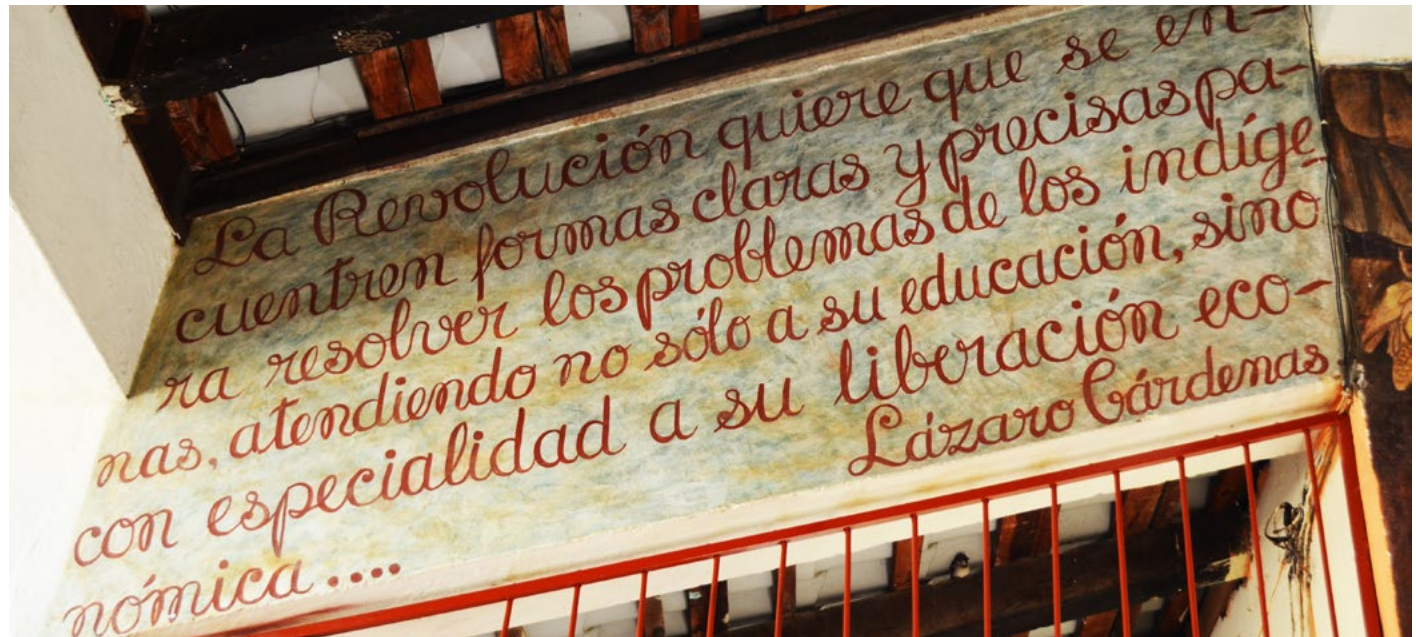 La Revolución quiere que se en-
cuentren formas claras y precisas pa-
ra resolver los problemas de los indíge-
nas, atendiendo no sólo a su educación, sino
con especialidad a su liberación eco-
nómica....
Lázaro Cárdenas